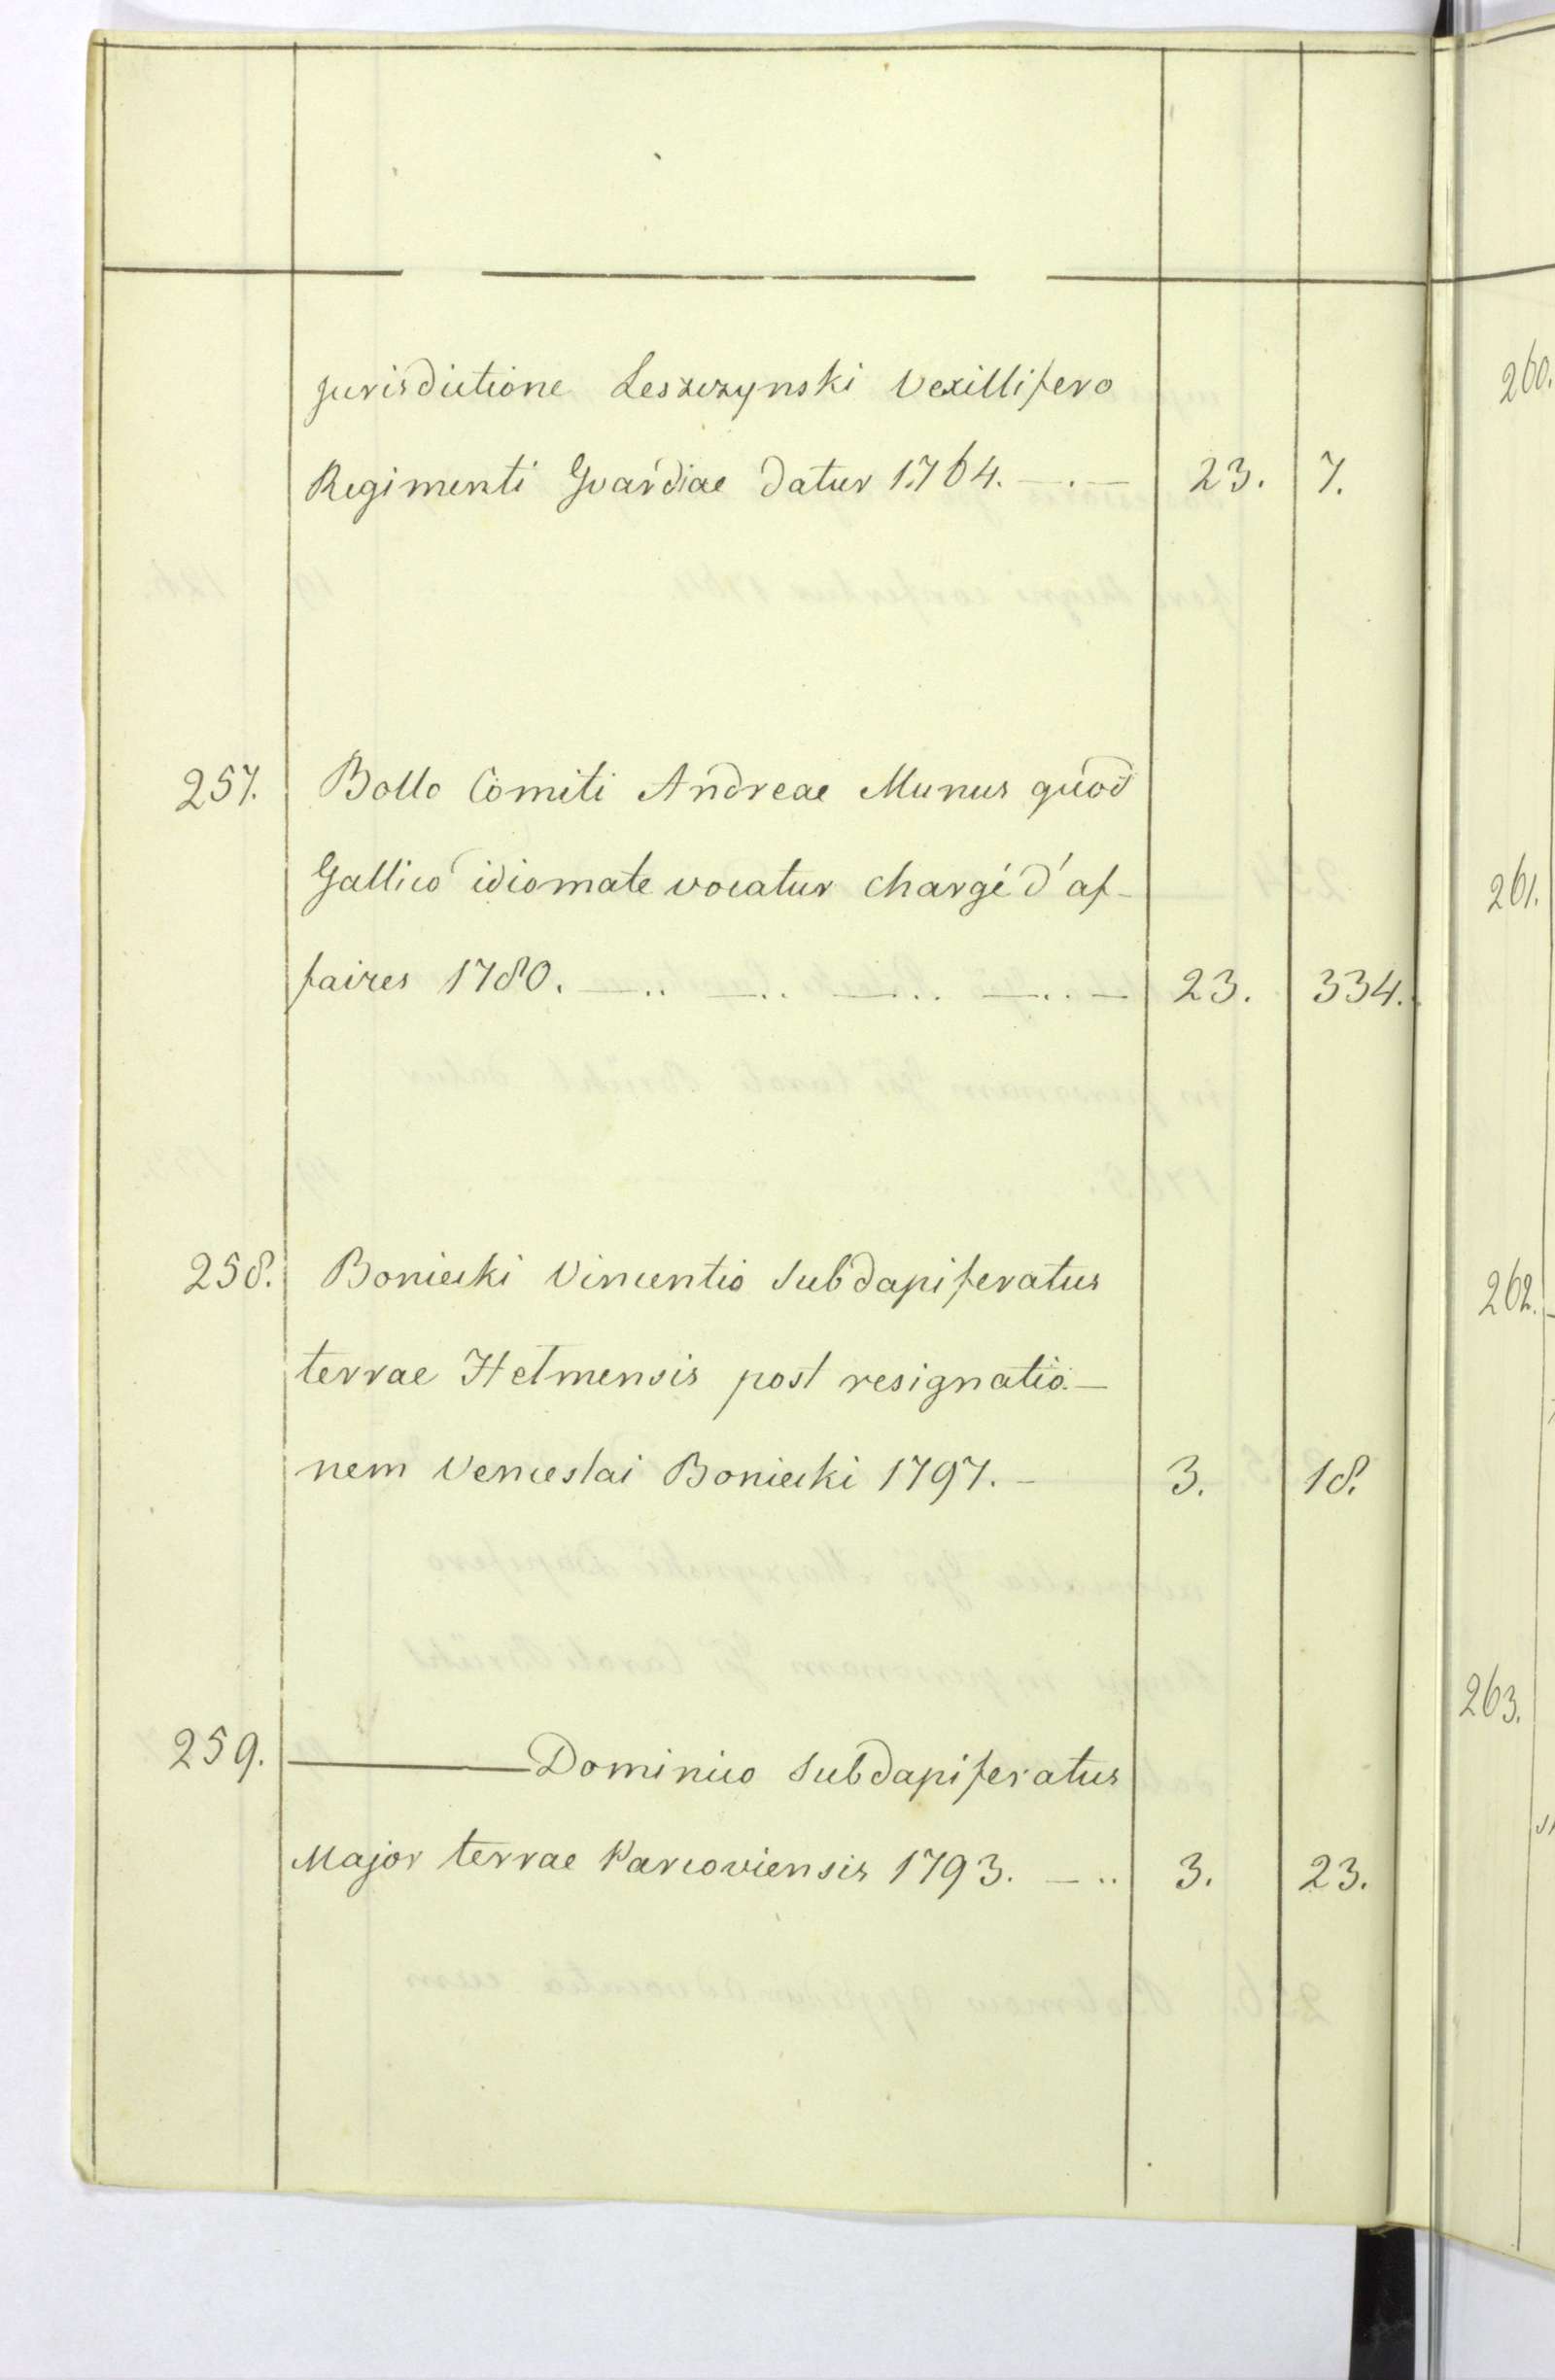 jurisdictione Leszczynski Vexillifero
Regimenti Gvardiae datur 1764. —.— 23. 7.
257. Bollo Comiti Andreae Munus quod
Gallico idiomate vocatur chargé d'af-
faires 1780. —.. —.. —.. —..— 23. 334.
258. Boniecki Vincentio Subdapiferatus
terrae Helmensis post resignatio-
nem Venceslai Boniecki 1797. — 3. 18.
259. ——— Dominico Subdapiferatus
Major terrae Parcoviensis 1793. — .. 3. 23.
260.
261.
262.
263.